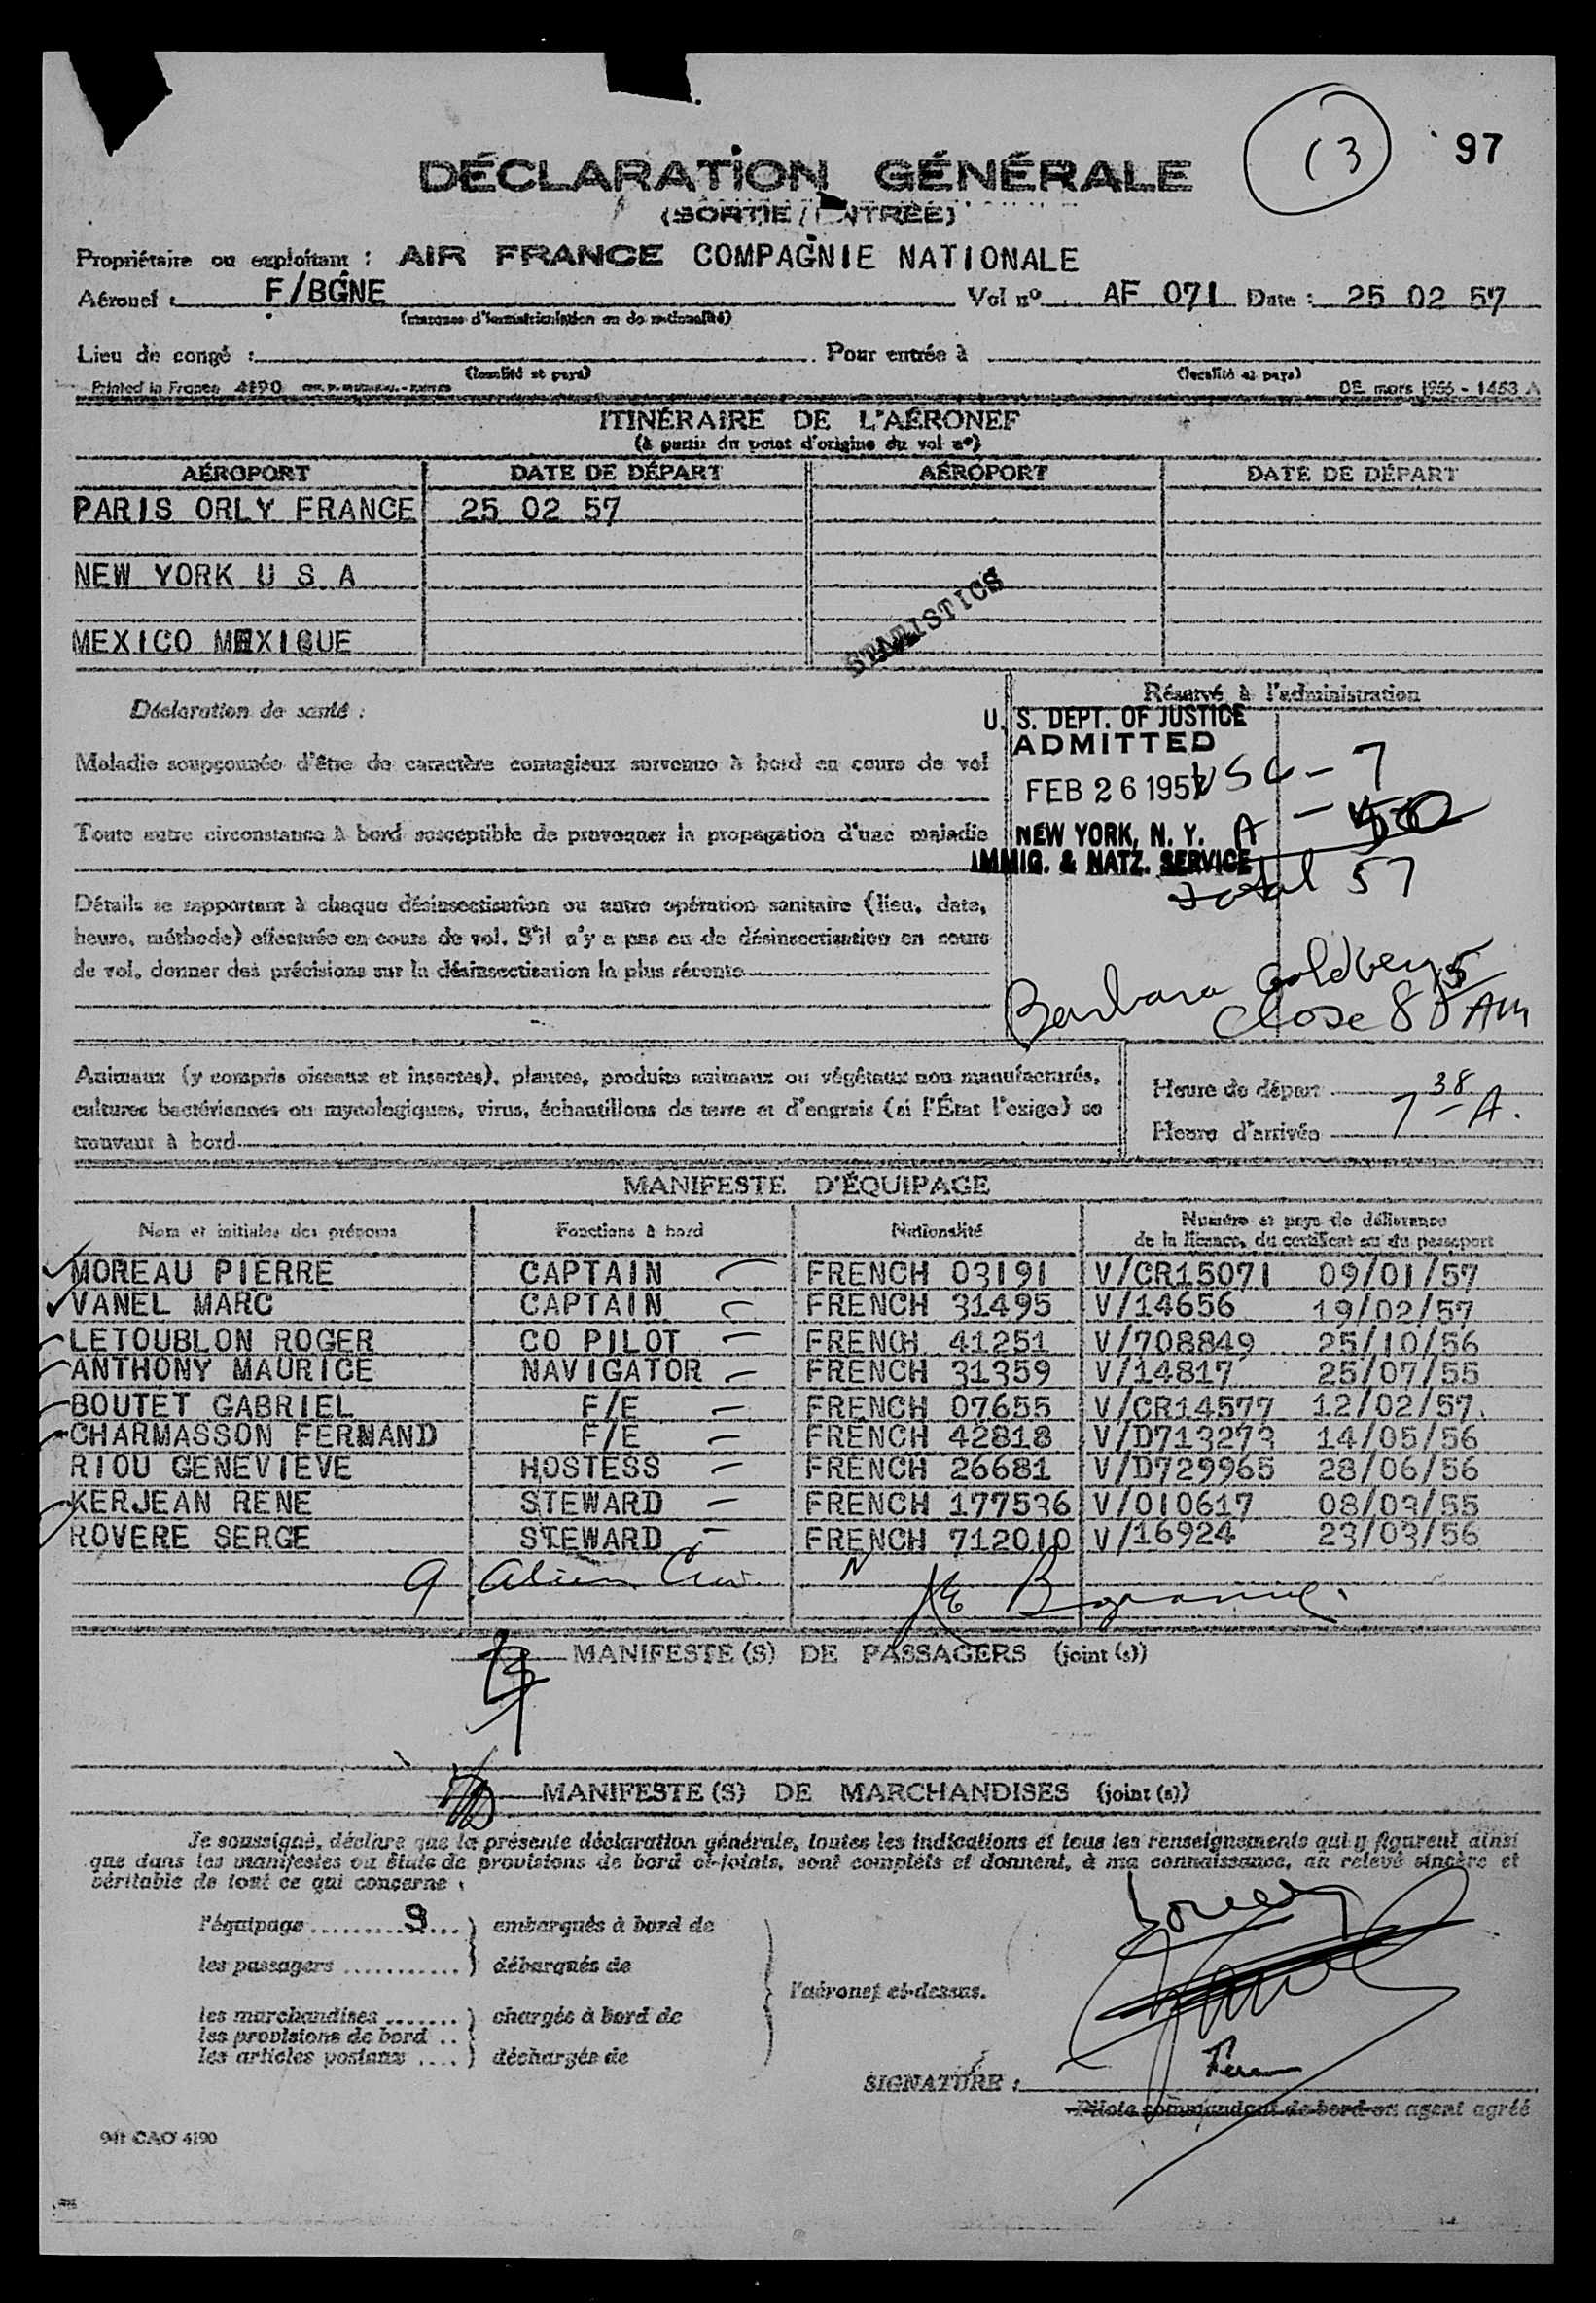 (3
97
DÉCLARATION GÉNÉRALE
(SORTIE / ENTRÉE)
Propriétaire ou exploitant : AIR FRANCE COMPAGNIE NATIONALE
Aéronef : F/BGNE Vol nº AF 071 Date : 25 02 57
(marques d'immatriculation ou de nationalité)
Lieu de congé : Pour entrée à
(localité et pays) (localité et pays)
Printed in France 4190 DE mars 1956 - 1453 A
ITINÉRAIRE DE L'AÉRONEF
(à partir du point d'origine du vol nº)
AÉROPORT DATE DE DÉPART AÉROPORT DATE DE DÉPART
PARIS ORLY FRANCE 25 02 57
NEW YORK U S A
MEXICO MEXIQUE
STATISTICS
Déclaration de santé :
Réservé à l'administration
U. S. DEPT. OF JUSTICE
ADMITTED
Maladie soupçonnée d'être de caractère contagieux survenue à bord en cours de vol
FEB 26 1957 USC - 7
Toute autre circonstance à bord susceptible de provoquer la propagation d'une maladie
NEW YORK, N. Y. A - 50
IMMIG. & NATZ. SERVICE
Total 57
Détails se rapportant à chaque désinsectisation ou autre opération sanitaire (lieu, date,
heure, méthode) effectuée en cours de vol. S'il n'y a pas eu de désinsectisation en cours
de vol, donner des précisions sur la désinsectisation la plus récente
Barbara Goldberg
Close 8 15 AM
Animaux (y compris oiseaux et insectes), plantes, produits animaux ou végétaux non manufacturés,
cultures bactériennes ou mycologiques, virus, échantillons de terre et d'engrais (si l'État l'exige) se
trouvant à bord
Heure de départ
Heure d'arrivée 7 38 A.
MANIFESTE D'ÉQUIPAGE
Nom et initiales des prénoms Fonctions à bord Nationalité Numéro et pays de délivrance
de la licence, du certificat ou du passeport
MOREAU PIERRE CAPTAIN FRENCH 03191 V/CR15071 09/01/57
VANEL MARC CAPTAIN FRENCH 31495 V/14656 19/02/57
LETOUBLON ROGER CO PILOT FRENCH 41251 V/708849 25/10/56
ANTHONY MAURICE NAVIGATOR FRENCH 31359 V/14817 25/07/55
BOUTET GABRIEL F/E FRENCH 07655 V/CR14577 12/02/57
CHARMASSON FERNAND F/E FRENCH 42818 V/D713273 14/05/56
RIOU GENEVIEVE HOSTESS FRENCH 26681 V/D729965 28/06/56
KERJEAN RENE STEWARD FRENCH 177536 V/010617 08/03/55
ROVERE SERGE STEWARD FRENCH 712010 V/16924 23/03/56
9 alien Crew
MANIFESTE (S) DE PASSAGERS (joint (s))
MANIFESTE (S) DE MARCHANDISES (joint (s))
Je soussigné, déclare que la présente déclaration générale, toutes les indications et tous les renseignements qui y figurent ainsi
que dans les manifestes ou états de provisions de bord ci-joints, sont complets et donnent, à ma connaissance, un relevé sincère et
véritable de tout ce qui concerne :
l'équipage 9 embarqués à bord de
les passagers débarqués de
l'aéronef ci-dessus.
les marchandises chargés à bord de
les provisions de bord
les articles postaux déchargés de
SIGNATURE :
Pilote commandant de bord ou agent agréé
941 CAO 4190